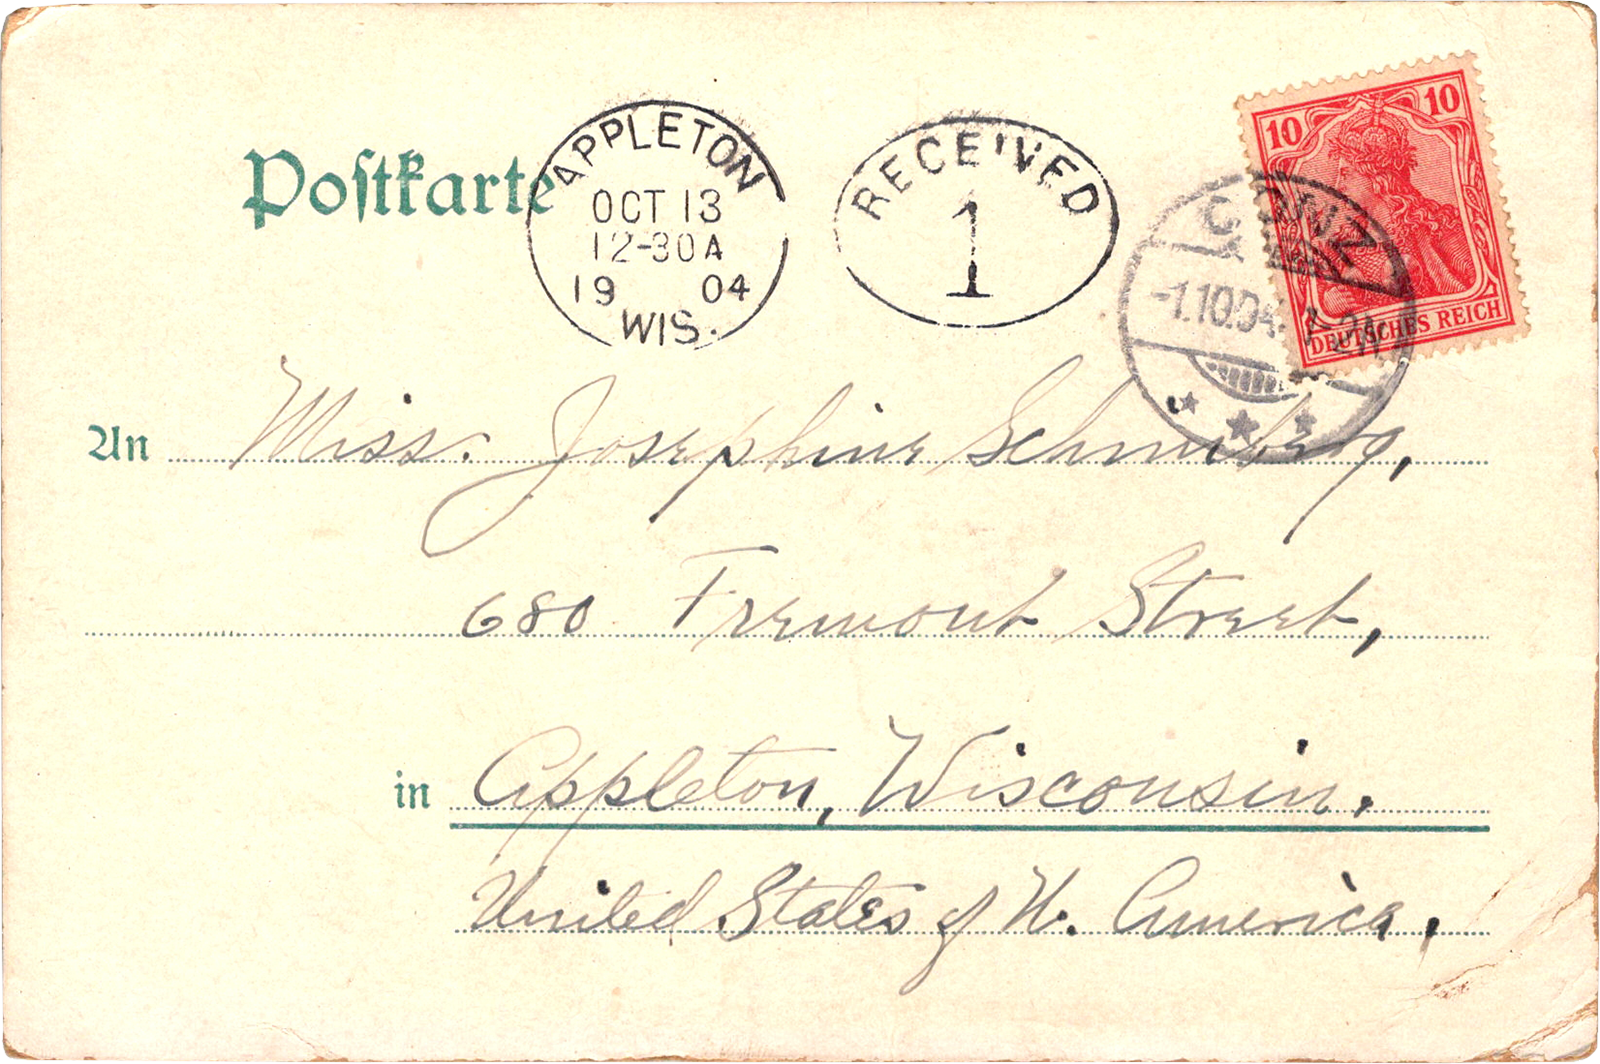 Postkarte
APPLETON
OCT 13
12-30A
19 04
WIS.
RECEIVED
1
10 10
DEUTSCHES REICH
CONZ
-1.10.04. 1-2N
An Miss. Josephine Schmiberg,
680 Fremont Street,
in Appleton, Wisconsin.
United States of N. America.